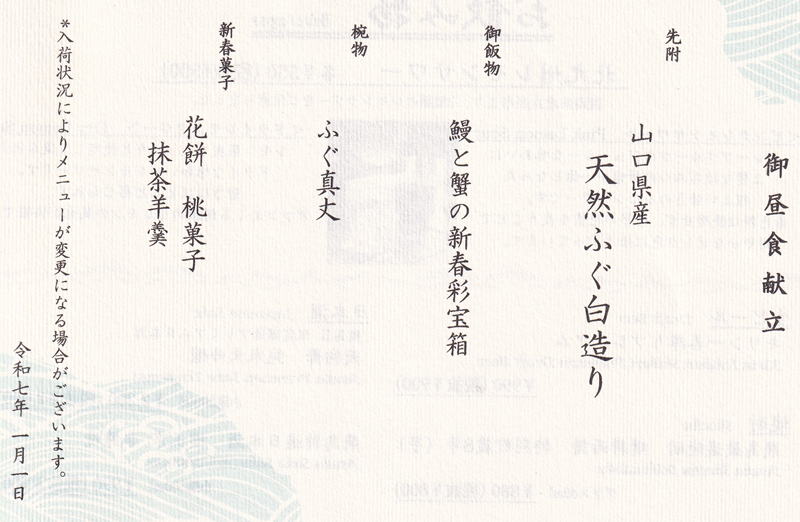 御昼食献立
先附
山口県産
天然ふぐ白造り
御飯物
鰻と蟹の新春彩宝箱
椀物
ふぐ真丈
新春菓子
花餅 桃菓子
抹茶羊羹
*入荷状況によりメニューが変更になる場合がございます。
令和七年 一月一日